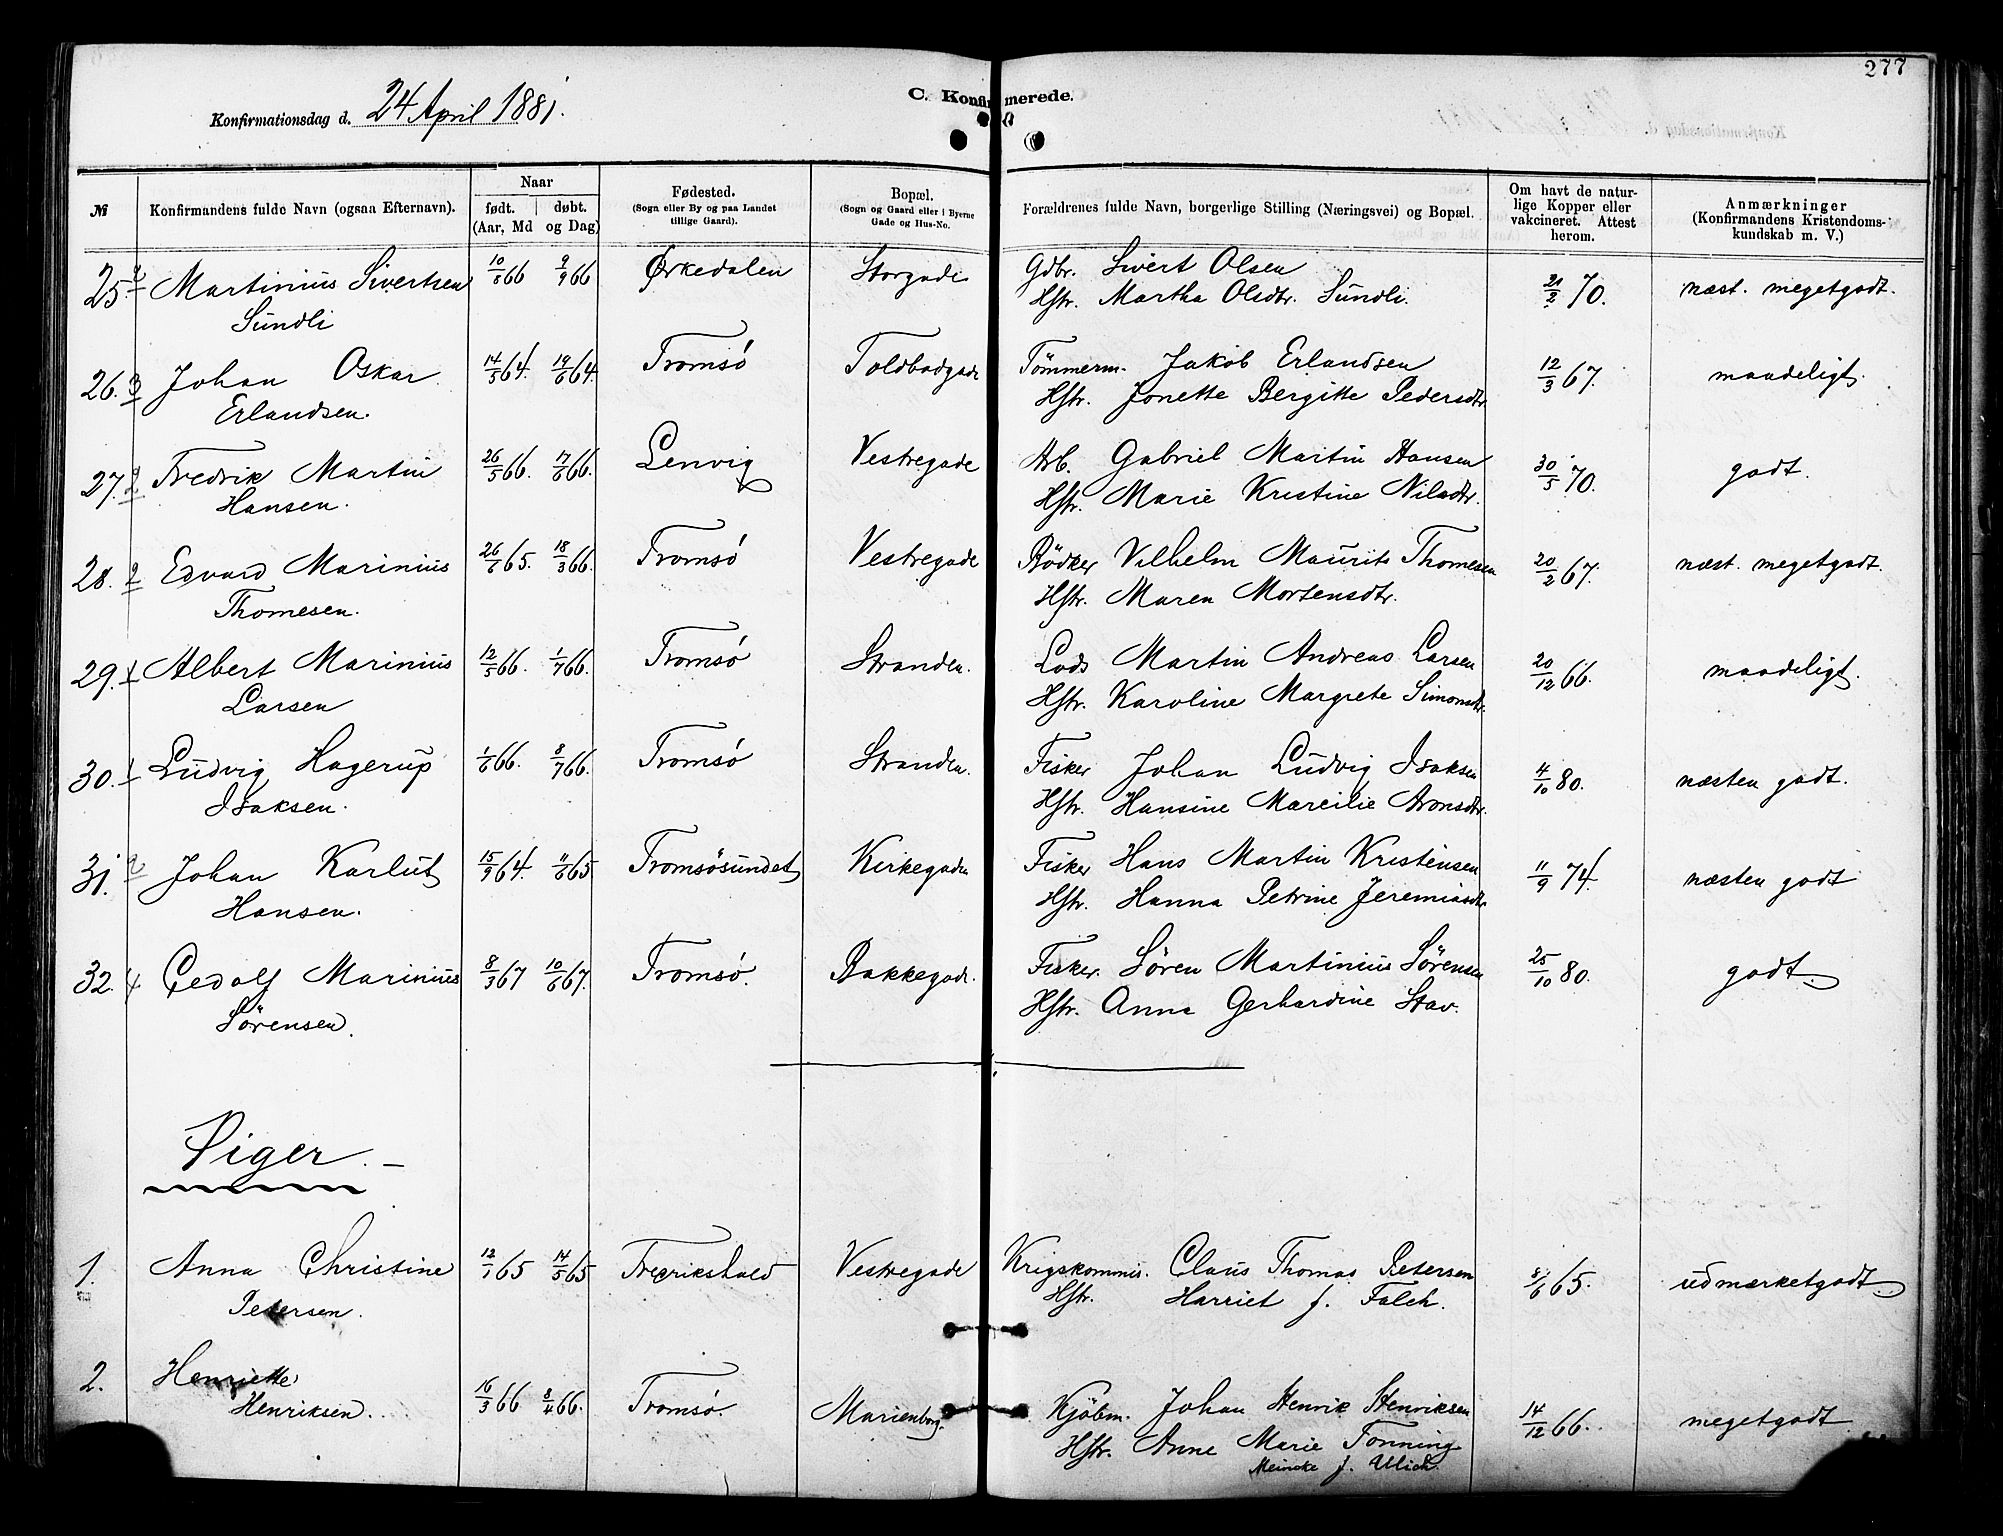 277
C. Konfirmerede.
Konfirmationsdag d. 24 April 1881.
№
Konfirmandens fulde Navn (ogsaa Efternavn).
Naar
født. døbt.
(Aar, Md og Dag)
Fødested.
(Sogn eller By og paa Landet
tillige Gaard).
Bopæl.
(Sogn og Gaard eller i Byerne
Gade og Hus-No.
Forældrenes fulde Navn, borgerlige Stilling (Næringsvei) og Bopæl.
Om havt de natur-
lige Kopper eller
vakcineret. Attest
herom.
Anmærkninger
(Konfirmandens Kristendoms-
kundskab m. V.)
25. Martinius Sivertsen 10/6 66 9/9 66 Ørkedalen Storgade Gdbr. Sivert Olsen 21/2 70. næst. megetgodt.
Sundli Hstr. Martha Olsdtr. Sundli.
26. 3 Johan Oskar 14/5 64. 19/6 64. Tromsö Toldbodgade Tömmerm. Jakob Erlandsen 12/3 67. maadeligt.
Erlandsen. Hstr. Jonette Bergitte Pedersdtr.
27. 2 Fredrik Martin 26/5 66. 17/6 66. Lenvig Vestregade Arb. Gabriel Martin Hansen 30/5 70. godt.
Hansen. Hstr. Marie Kristine Nilsdtr.
28. 2 Edvard Marinius 26/6 65. 18/3 66. Tromsö Vestregade Bödker Vilhelm Maurits Thomesen 20/2 67. næst. megetgodt.
Thomesen. Hstr. Maren Mortensdtr.
29. 1 Albert Marinius 12/5 66. 1/7 66. Tromsö Stranden. Lods Martin Andreas Larsen 20/12 66. maadeligt.
Larsen Hstr. Karoline Margrete Simonsdtr.
30. 1 Ludvig Hagerup 1/6 66. 8/7 66. Tromsö Stranden. Fisker Johan Ludvig Isaksen 4/10 80. næsten godt.
Isaksen. Hstr. Hansine Marcilie Aronsdtr.
31. Johan Karlut 15/9 64. 11/6 65 Tromsösundet Kirkegaden Fisker Hans Martin Kristensen 11/9 74. næsten godt
Hansen. Hstr. Hanna Petrine Jeremiasdtr.
32. 4 Gedolf Marinius 8/3 67 10/6 67. Tromsö. Bakkegade. Fisker. Sören Martinius Sörensen 25/10 80. godt.
Sörensen. Hstr. Anna Gerhardine Stav.
Piger.
1. Anna Christine 12/1 65 14/5 65 Fredrikshald Vestregade Krigskommis. Claus Thomas Petersen 8/6 65. udmærketgodt.
Petersen. Hstr. Harriet f. Falch.
2. Henriette 16/3 66 8/4 66. Tromsö. Marienborg. Kjöbm. Johan Henrik Henriksen 14/12 66. megetgodt
Henriksen. Hstr. Anne Marie Fonning
Meincke f. Ulich.